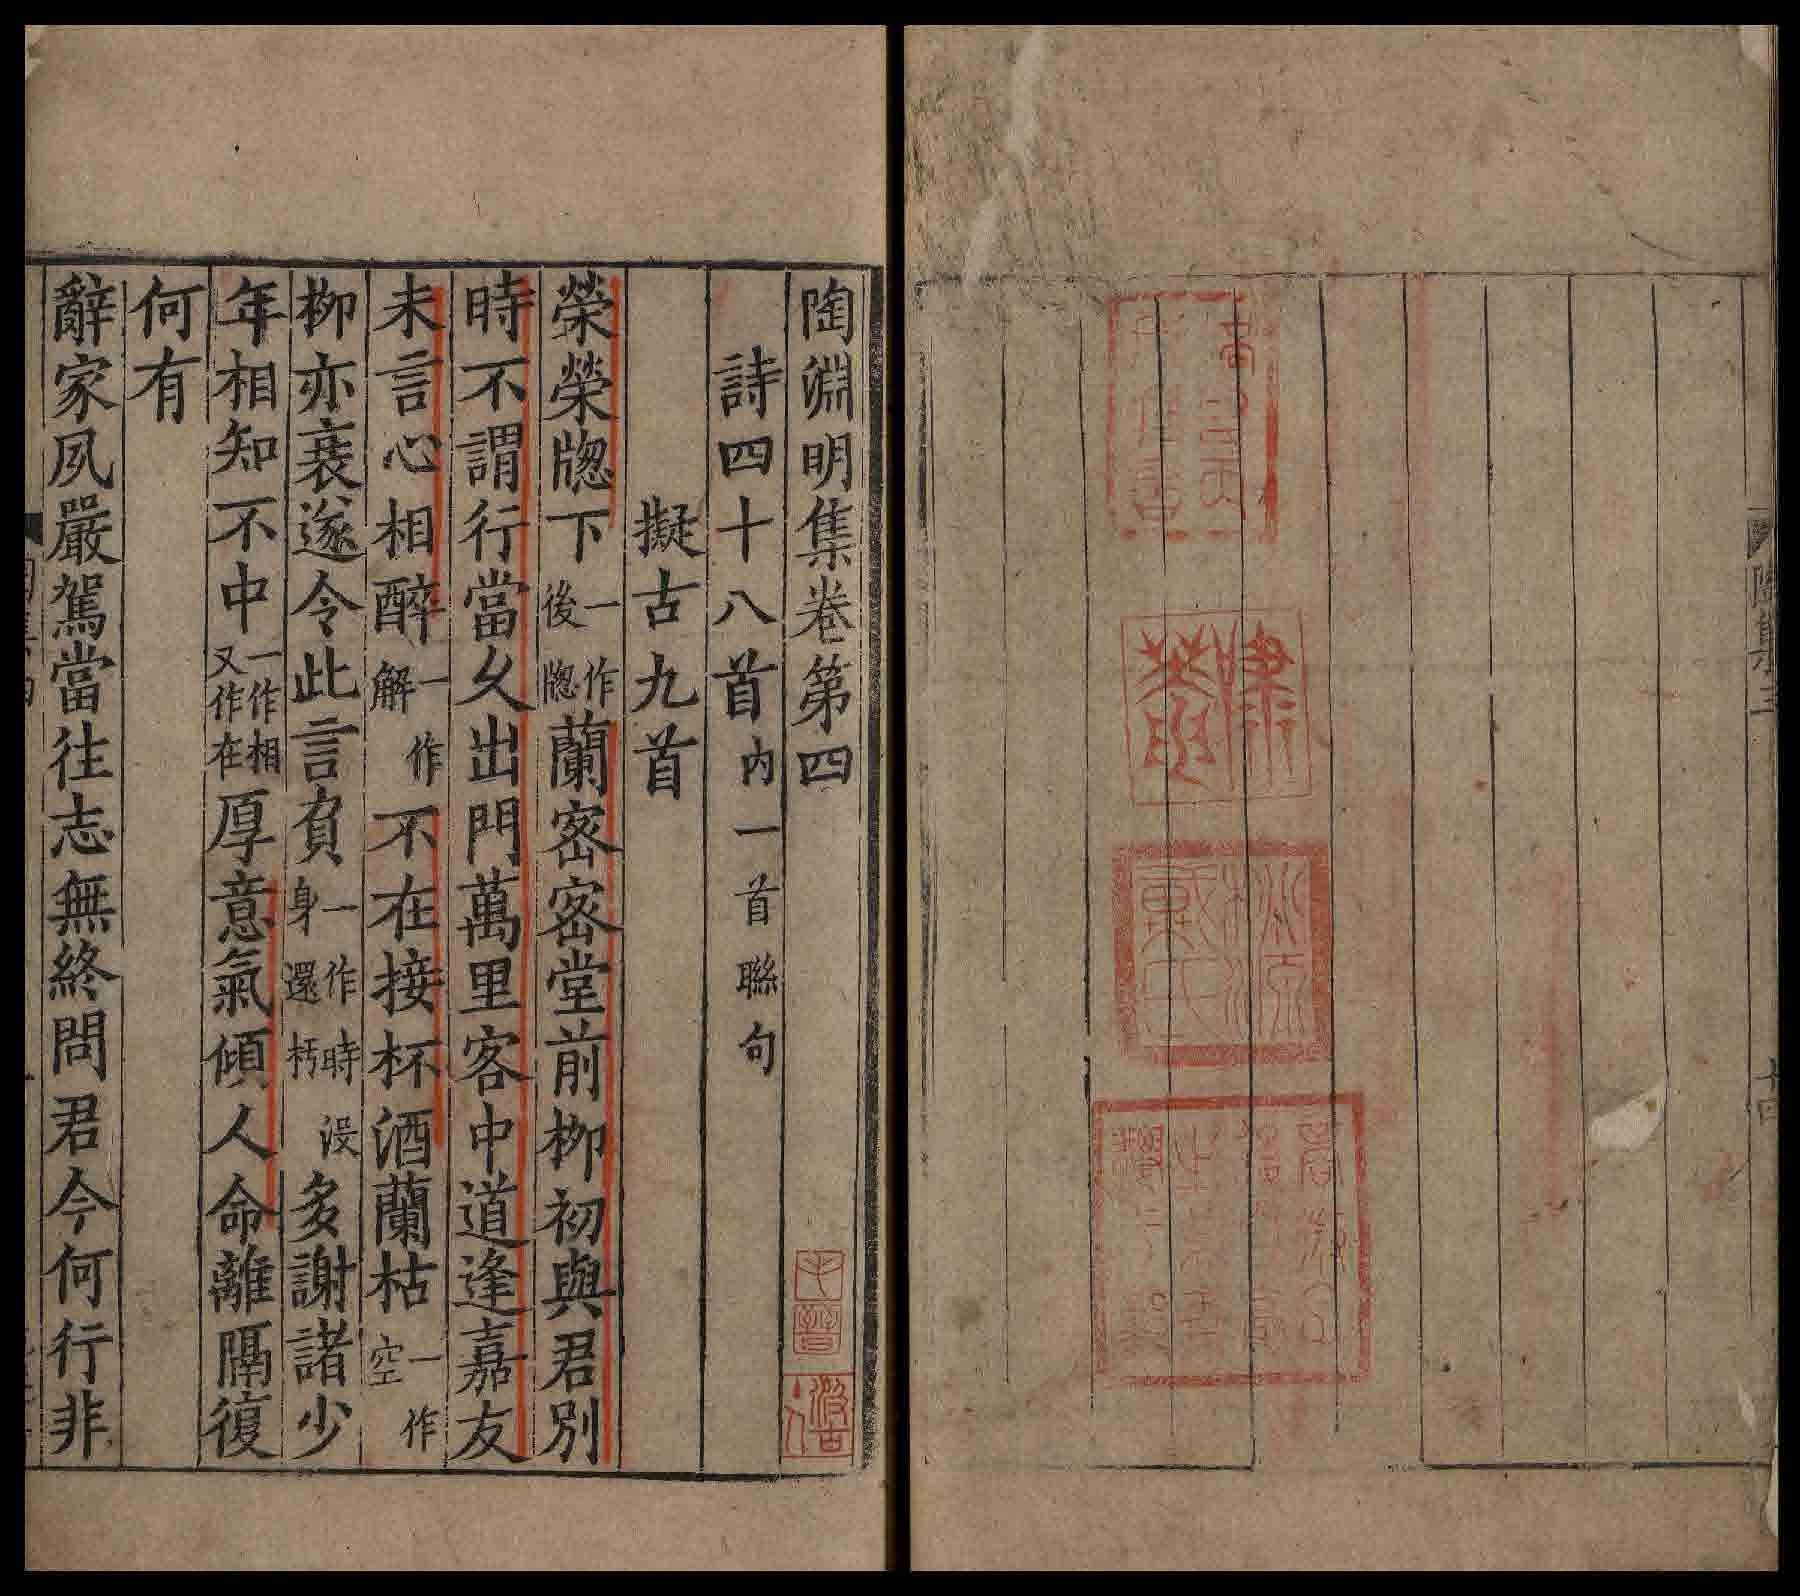 陶淵明集卷第四
詩四十八首內一首聯句
擬古九首
榮榮牎下一作後牎蘭密密堂前柳初與君別
時不謂行當久出門萬里客中道逢嘉友
未言心相醉一作解不在接杯酒蘭枯一作空
柳亦衰遂令此言負一作時沒身還朽多謝諸少
年相知不中一作相又作在厚意氣傾人命離隔復
何有
辭家夙嚴駕當往志無終問君今何行非